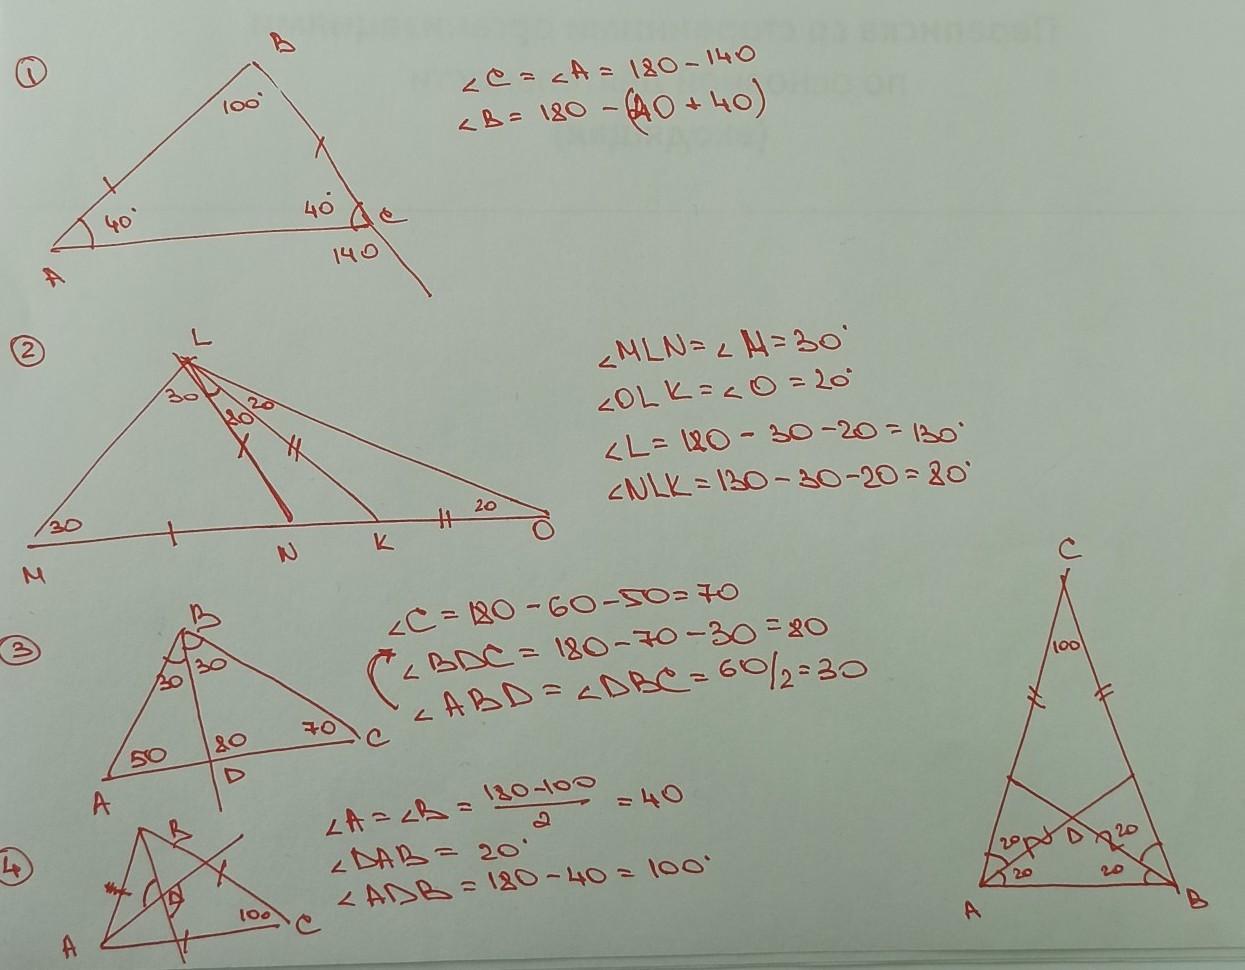 ①
B
100°
∠C = ∠A = 180 - 140
∠B = 180 - (40 + 40)
40°
40°
C
140
A
②
L
30
20
80
30
20
M
N
K
O
∠MLN = ∠M = 30°
∠OLK = ∠O = 20°
∠L = 180 - 30 - 20 = 130°
∠NLK = 130 - 30 - 20 = 80°
③
B
30
30
50
80
70
A
D
C
∠C = 180 - 60 - 50 = 70
∠BDC = 180 - 70 - 30 = 80
∠ABD = ∠DBC = 60/2 = 30
④
B
D
100
A
C
∠A = ∠B = (180-100)/2 = 40
∠DAB = 20°
∠ADB = 180 - 40 = 100°
C
100
20
D
20
20
20
A
B